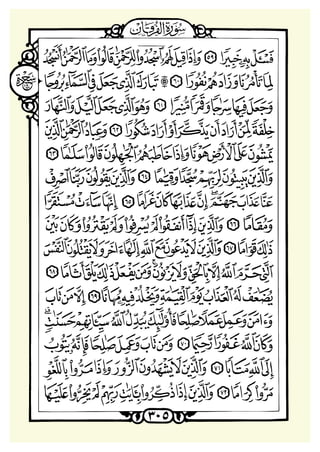 سُورَةُ الفُرْقَان
فَسْـَٔلْ بِهِۦ خَبِيرًا ٥٩ وَإِذَا قِيلَ لَهُمُ ٱسْجُدُوا۟ لِلرَّحْمَٰنِ قَالُوا۟ وَمَا ٱلرَّحْمَٰنُ أَنَسْجُدُ
لِمَا تَأْمُرُنَا وَزَادَهُمْ نُفُورًا ٦٠ ۞ تَبَارَكَ ٱلَّذِى جَعَلَ فِى ٱلسَّمَآءِ بُرُوجًا
وَجَعَلَ فِيهَا سِرَٰجًا وَقَمَرًا مُّنِيرًا ٦١ وَهُوَ ٱلَّذِى جَعَلَ ٱلَّيْلَ وَٱلنَّهَارَ
خِلْفَةً لِّمَنْ أَرَادَ أَن يَذَّكَّرَ أَوْ أَرَادَ شُكُورًا ٦٢ وَعِبَادُ ٱلرَّحْمَٰنِ ٱلَّذِينَ
يَمْشُونَ عَلَى ٱلْأَرْضِ هَوْنًا وَإِذَا خَاطَبَهُمُ ٱلْجَٰهِلُونَ قَالُوا۟ سَلَٰمًا ٦٣
وَٱلَّذِينَ يَبِيتُونَ لِرَبِّهِمْ سُجَّدًا وَقِيَٰمًا ٦٤ وَٱلَّذِينَ يَقُولُونَ رَبَّنَا ٱصْرِفْ
عَنَّا عَذَابَ جَهَنَّمَ إِنَّ عَذَابَهَا كَانَ غَرَامًا ٦٥ إِنَّهَا سَآءَتْ مُسْتَقَرًّا
وَمُقَامًا ٦٦ وَٱلَّذِينَ إِذَآ أَنفَقُوا۟ لَمْ يُسْرِفُوا۟ وَلَمْ يَقْتُرُوا۟ وَكَانَ بَيْنَ
ذَٰلِكَ قَوَامًا ٦٧ وَٱلَّذِينَ لَا يَدْعُونَ مَعَ ٱللَّهِ إِلَٰهًا ءَاخَرَ وَلَا يَقْتُلُونَ ٱلنَّفْسَ
ٱلَّتِى حَرَّمَ ٱللَّهُ إِلَّا بِٱلْحَقِّ وَلَا يَزْنُونَ وَمَن يَفْعَلْ ذَٰلِكَ يَلْقَ أَثَامًا ٦٨
يُضَٰعَفْ لَهُ ٱلْعَذَابُ يَوْمَ ٱلْقِيَٰمَةِ وَيَخْلُدْ فِيهِۦ مُهَانًا ٦٩ إِلَّا مَن تَابَ
وَءَامَنَ وَعَمِلَ عَمَلًا صَٰلِحًا فَأُو۟لَٰٓئِكَ يُبَدِّلُ ٱللَّهُ سَيِّـَٔاتِهِمْ حَسَنَٰتٍ
وَكَانَ ٱللَّهُ غَفُورًا رَّحِيمًا ٧٠ وَمَن تَابَ وَعَمِلَ صَٰلِحًا فَإِنَّهُۥ يَتُوبُ
إِلَى ٱللَّهِ مَتَابًا ٧١ وَٱلَّذِينَ لَا يَشْهَدُونَ ٱلزُّورَ وَإِذَا مَرُّوا۟ بِٱللَّغْوِ
مَرُّوا۟ كِرَامًا ٧٢ وَٱلَّذِينَ إِذَا ذُكِّرُوا۟ بِـَٔايَٰتِ رَبِّهِمْ لَمْ يَخِرُّوا۟ عَلَيْهَا
٣٠٥